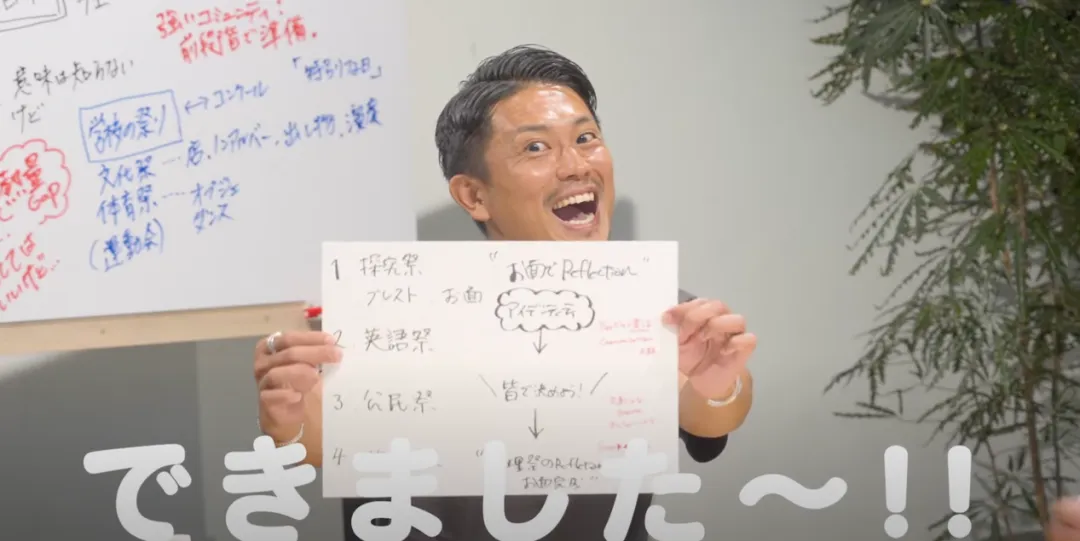 強いコミュニティ!
前段階で準備。
意味は知らない
けど
「特別な日」
学校の祭り ↔ コンクール
文化祭 … 店、ノンアルバー、出し物、演奏
体育祭 …… オブジェ
ダンス
(運動会)
熱量
GAP
1 探究祭 "お面でReflection"
ブレスト お面
アイデンティティ
2 英語祭
3 公民祭 \皆で決めよう!/
4
祭のReflection
できました〜!!